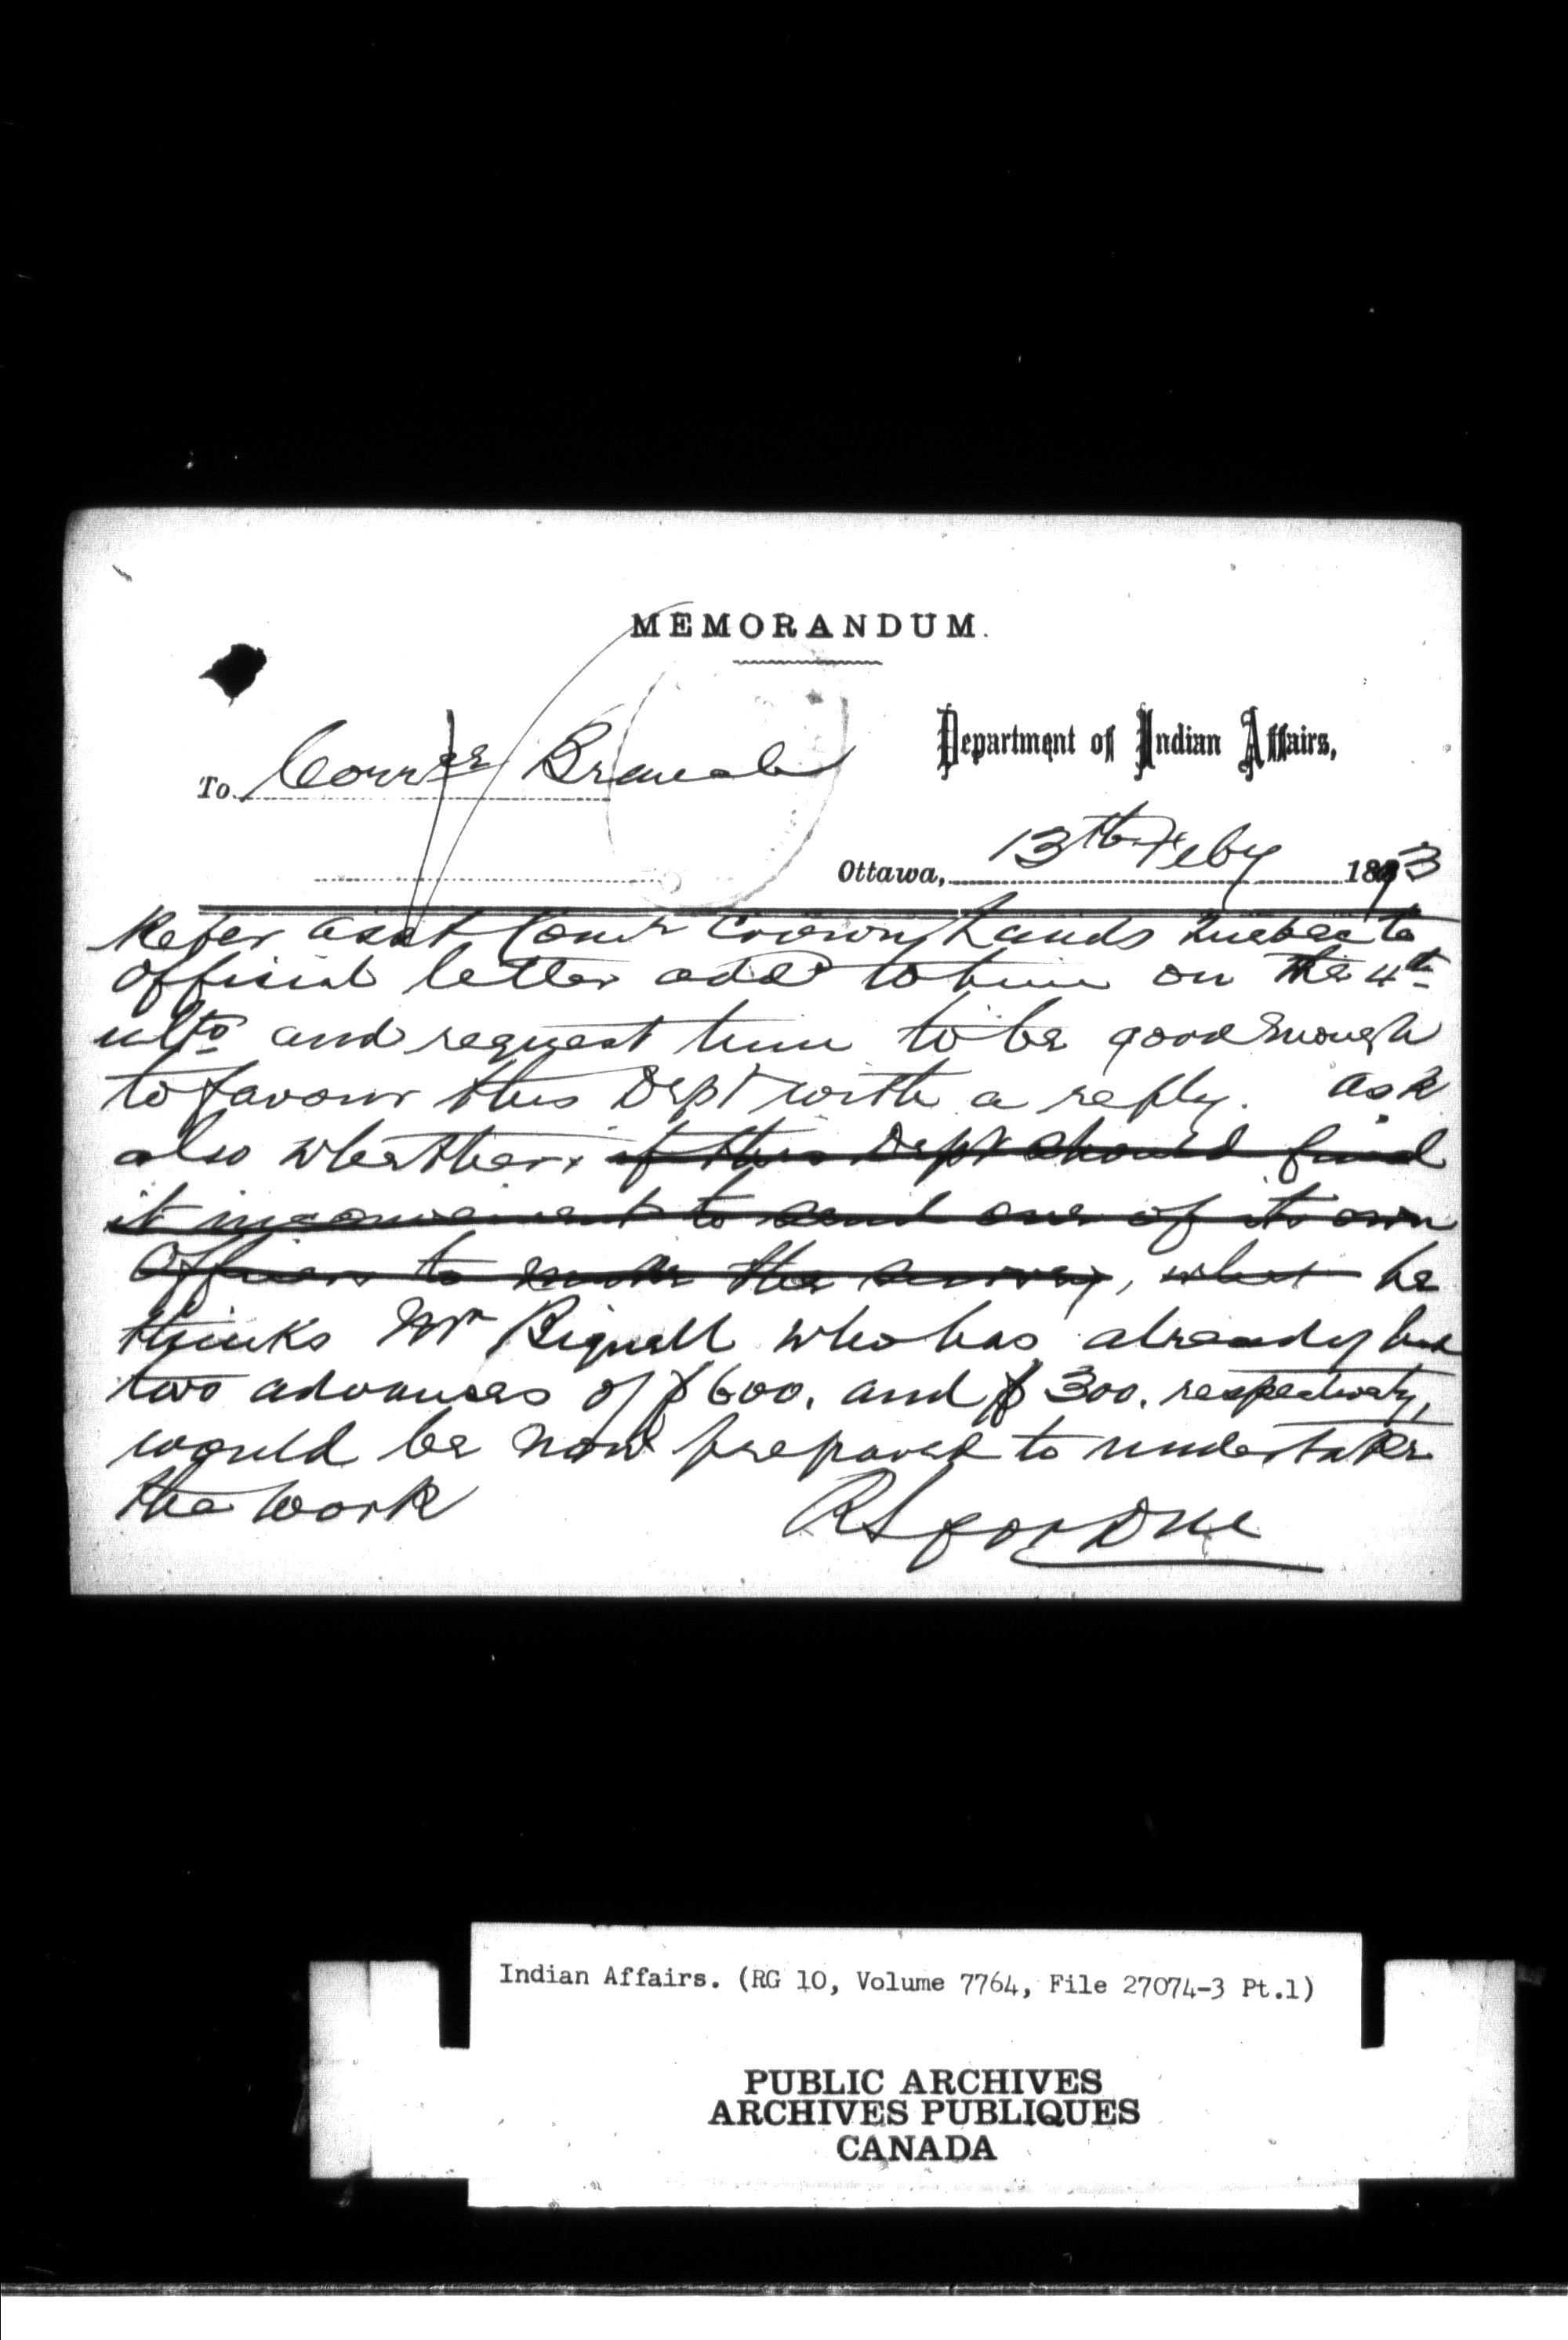 MEMORANDUM.
Department of Indian Affairs,
To Corres Branch
Ottawa, 13th Feby 1893
Refer asst Comr Crown Lands Quebec to
official letter addd to him on the 4th
ulto and request him to be good enough
to favour this Dept with a reply. ask
also whether if this Dept should find
it inconvenient to send one of its own
Officers to make the survey, what he
thinks Mr Bignell who has already had
two advances of $600. and $300. respectively,
would be now prepared to undertake
the work
RS for
Indian Affairs. (RG 10, Volume 7764, File 27074-3 Pt.1)
PUBLIC ARCHIVES
ARCHIVES PUBLIQUES
CANADA